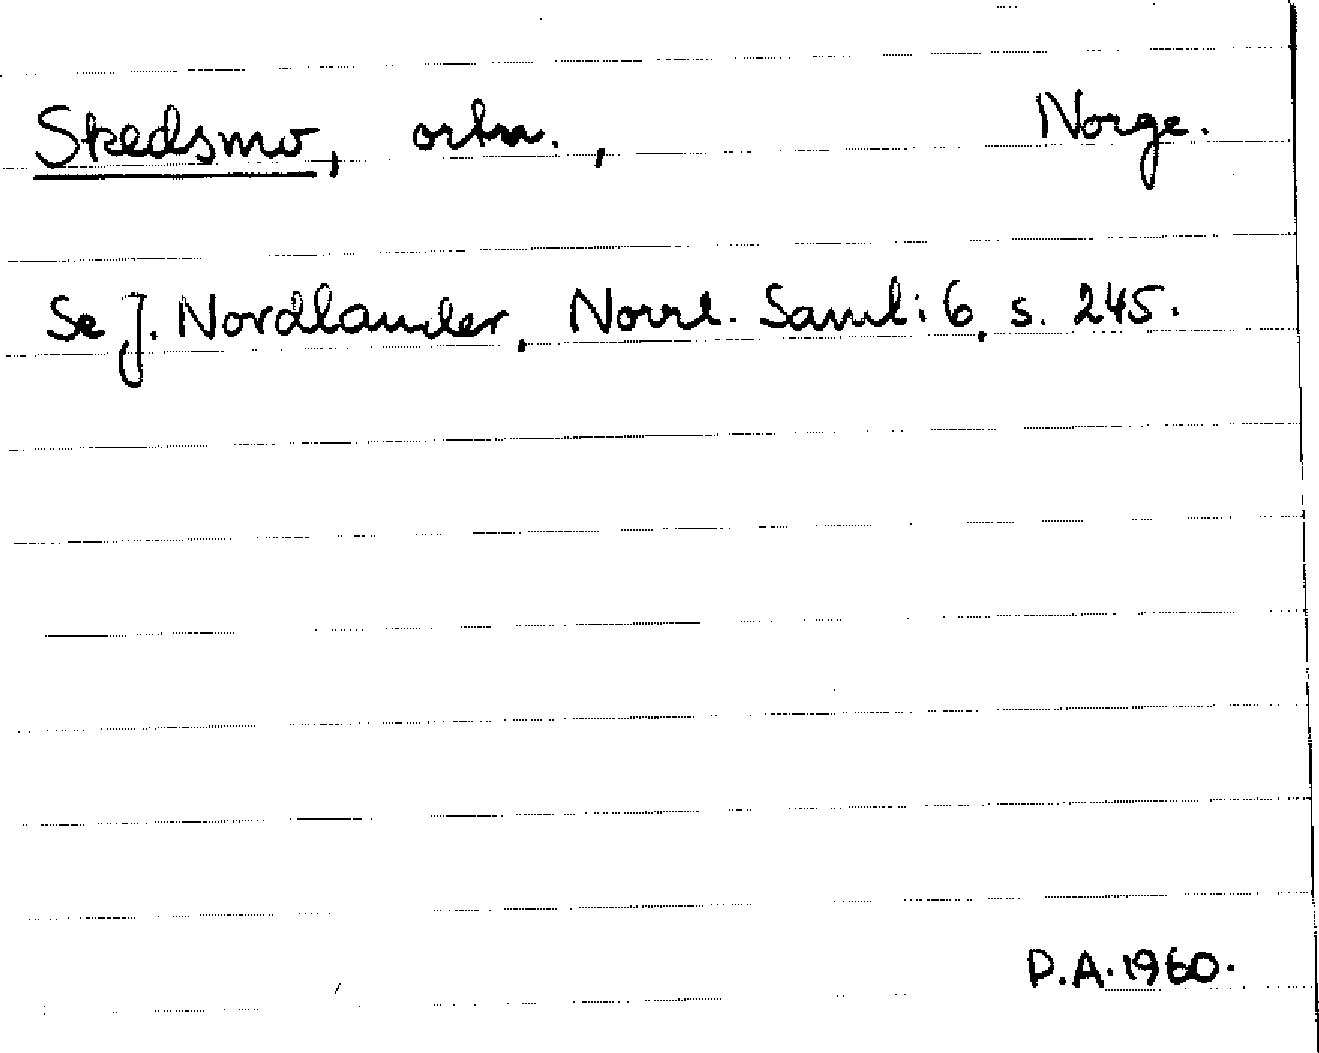 Skedsmo, ortn., Norge.
Se J. Nordlander, Norrl. Saml: 6, s. 245.
D.A. 1960.